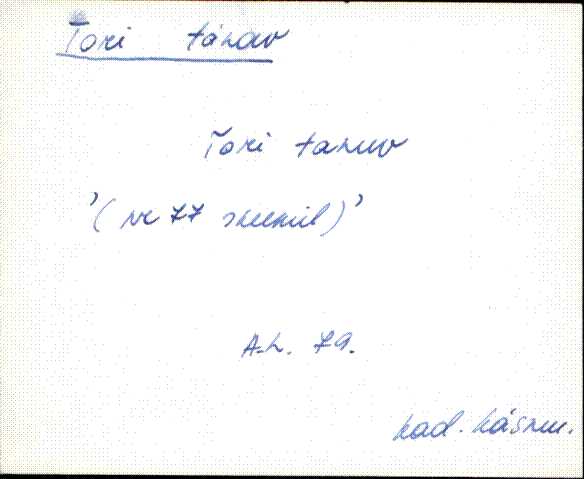 Tori tänav
Tori tanuv
'(nr 77 skeemil)'
A.L. 79.
Kad. Käsmu.